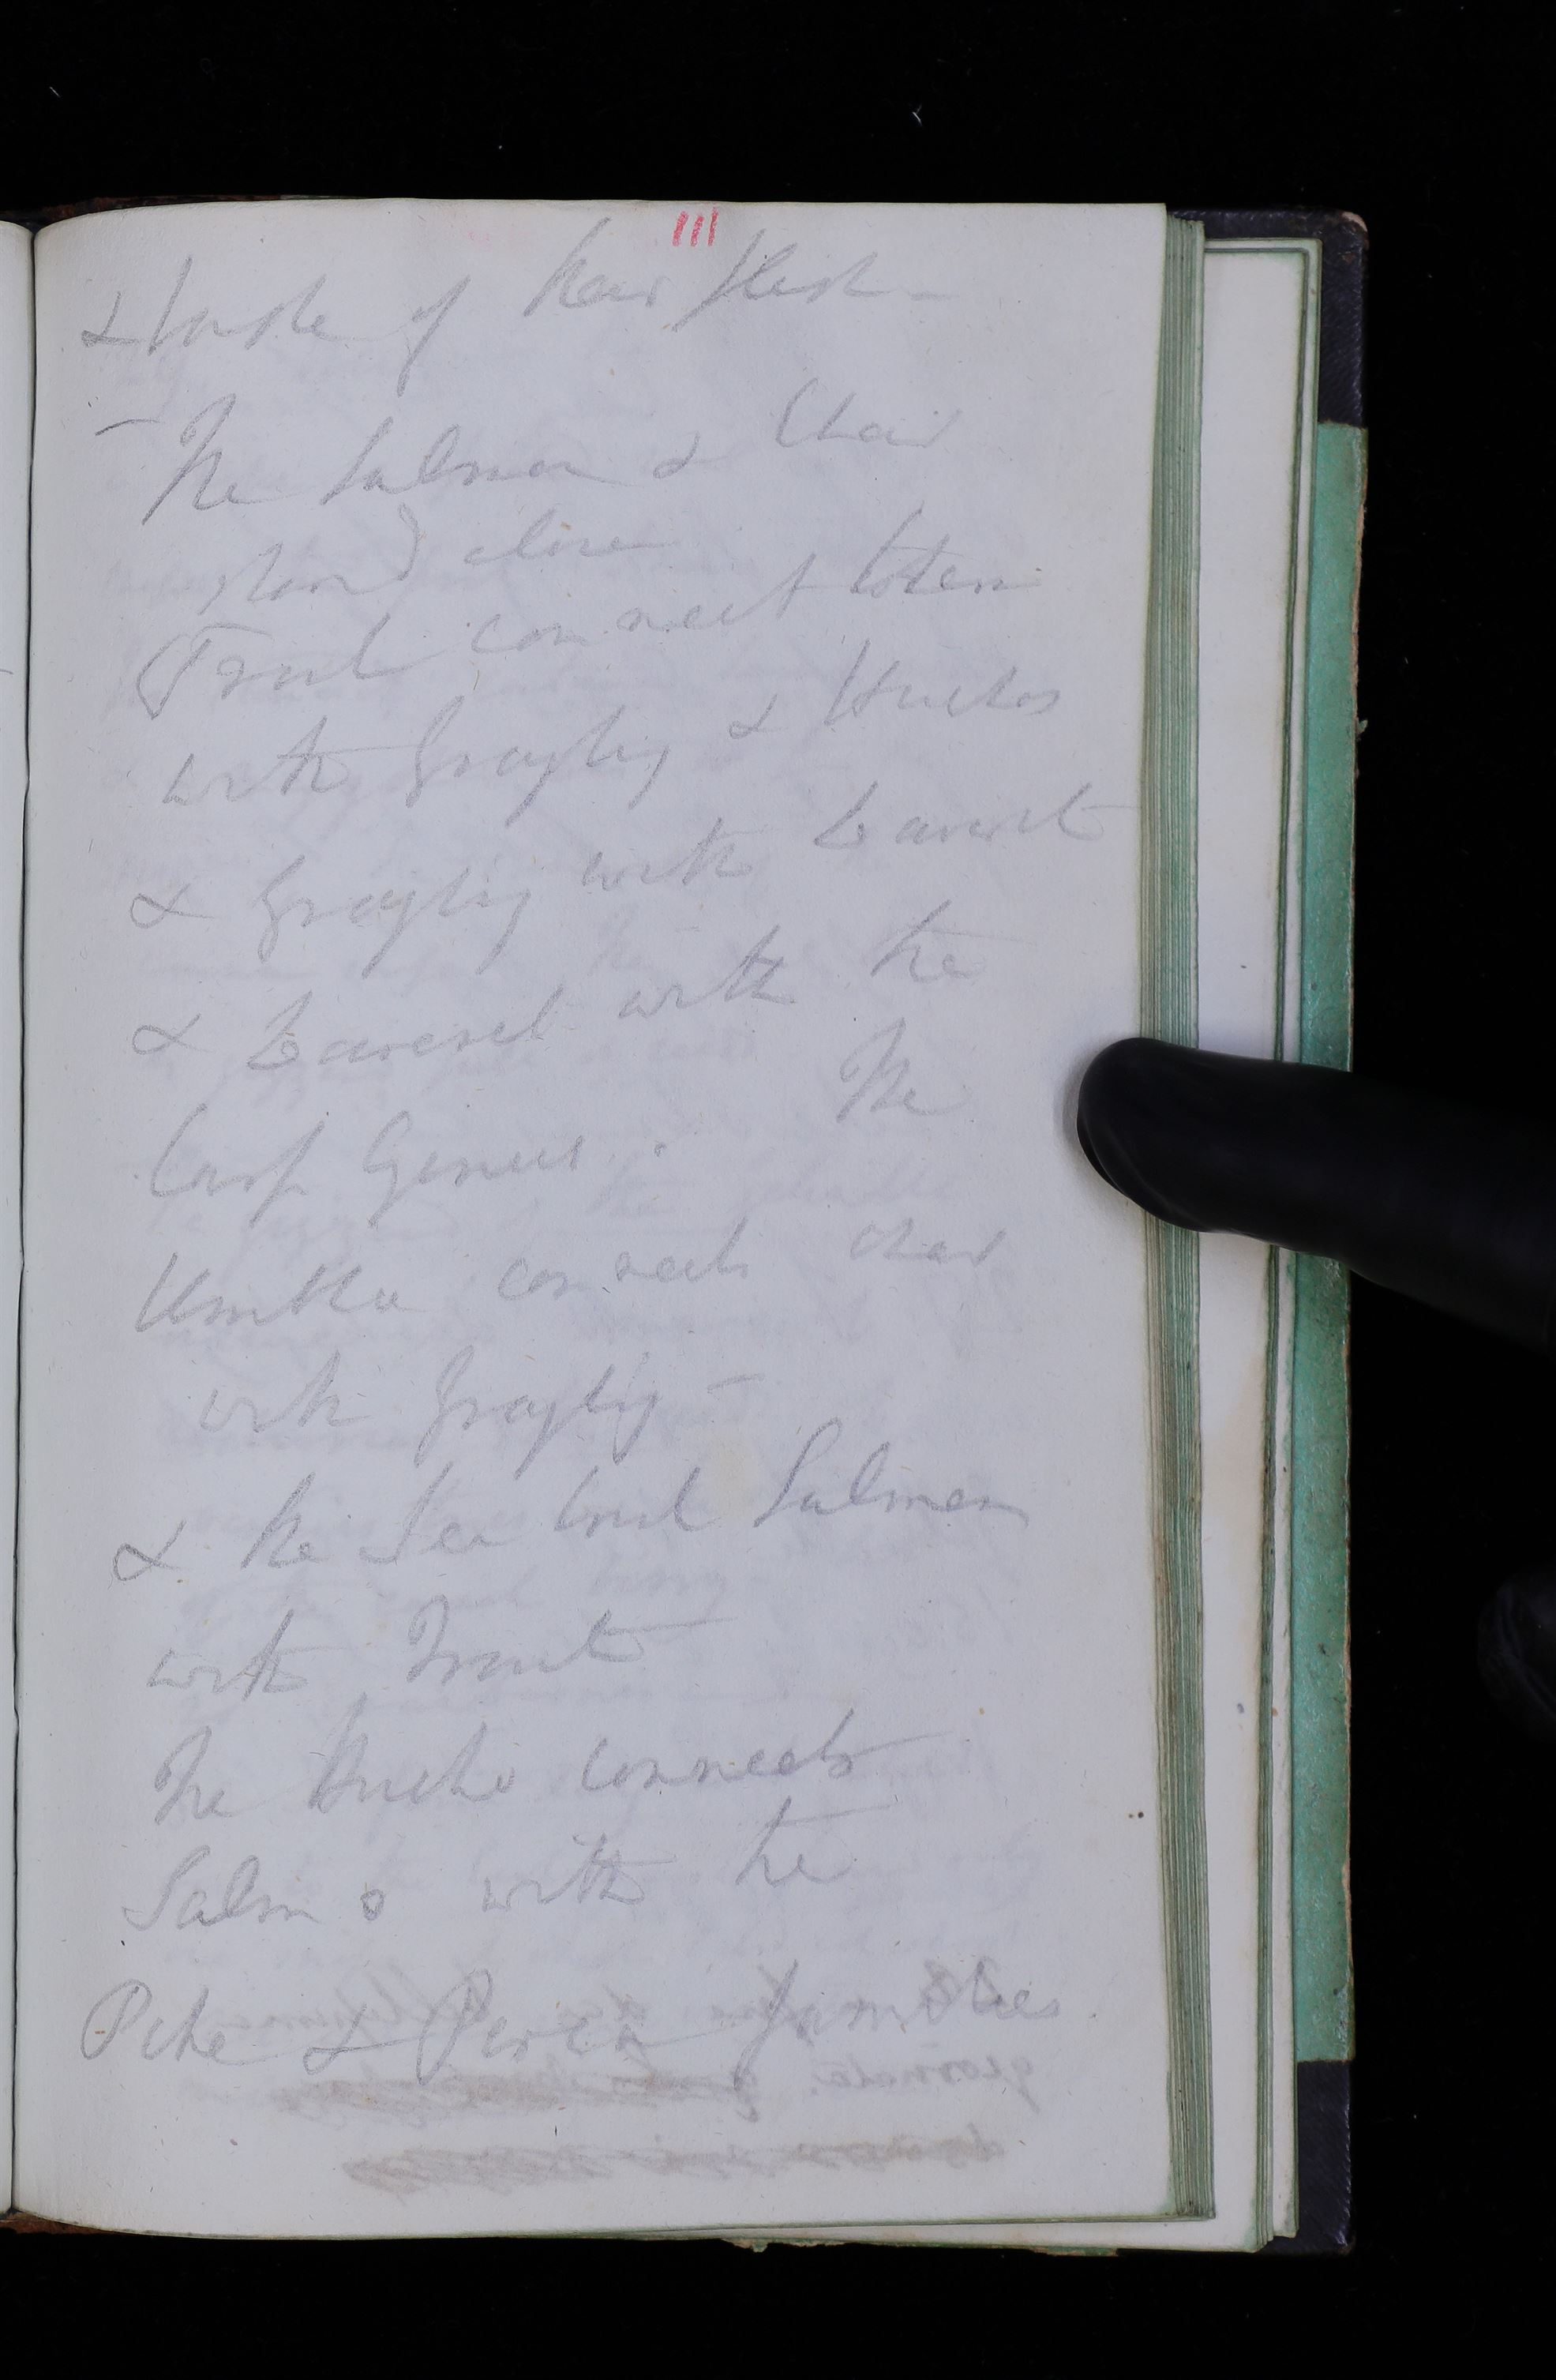 111
& taste of their flesh -
- The Salmon & Char
stand alone
Trout connect them
with Grayling & Huchos
& Grayling with Lavaret
& Lavaret with the
Carp Genus. The
Umbla connects char
with Grayling -
& the Sea trout Salmon
with Trout
The Hucho connects
Salmo with the
Pike & Perch families